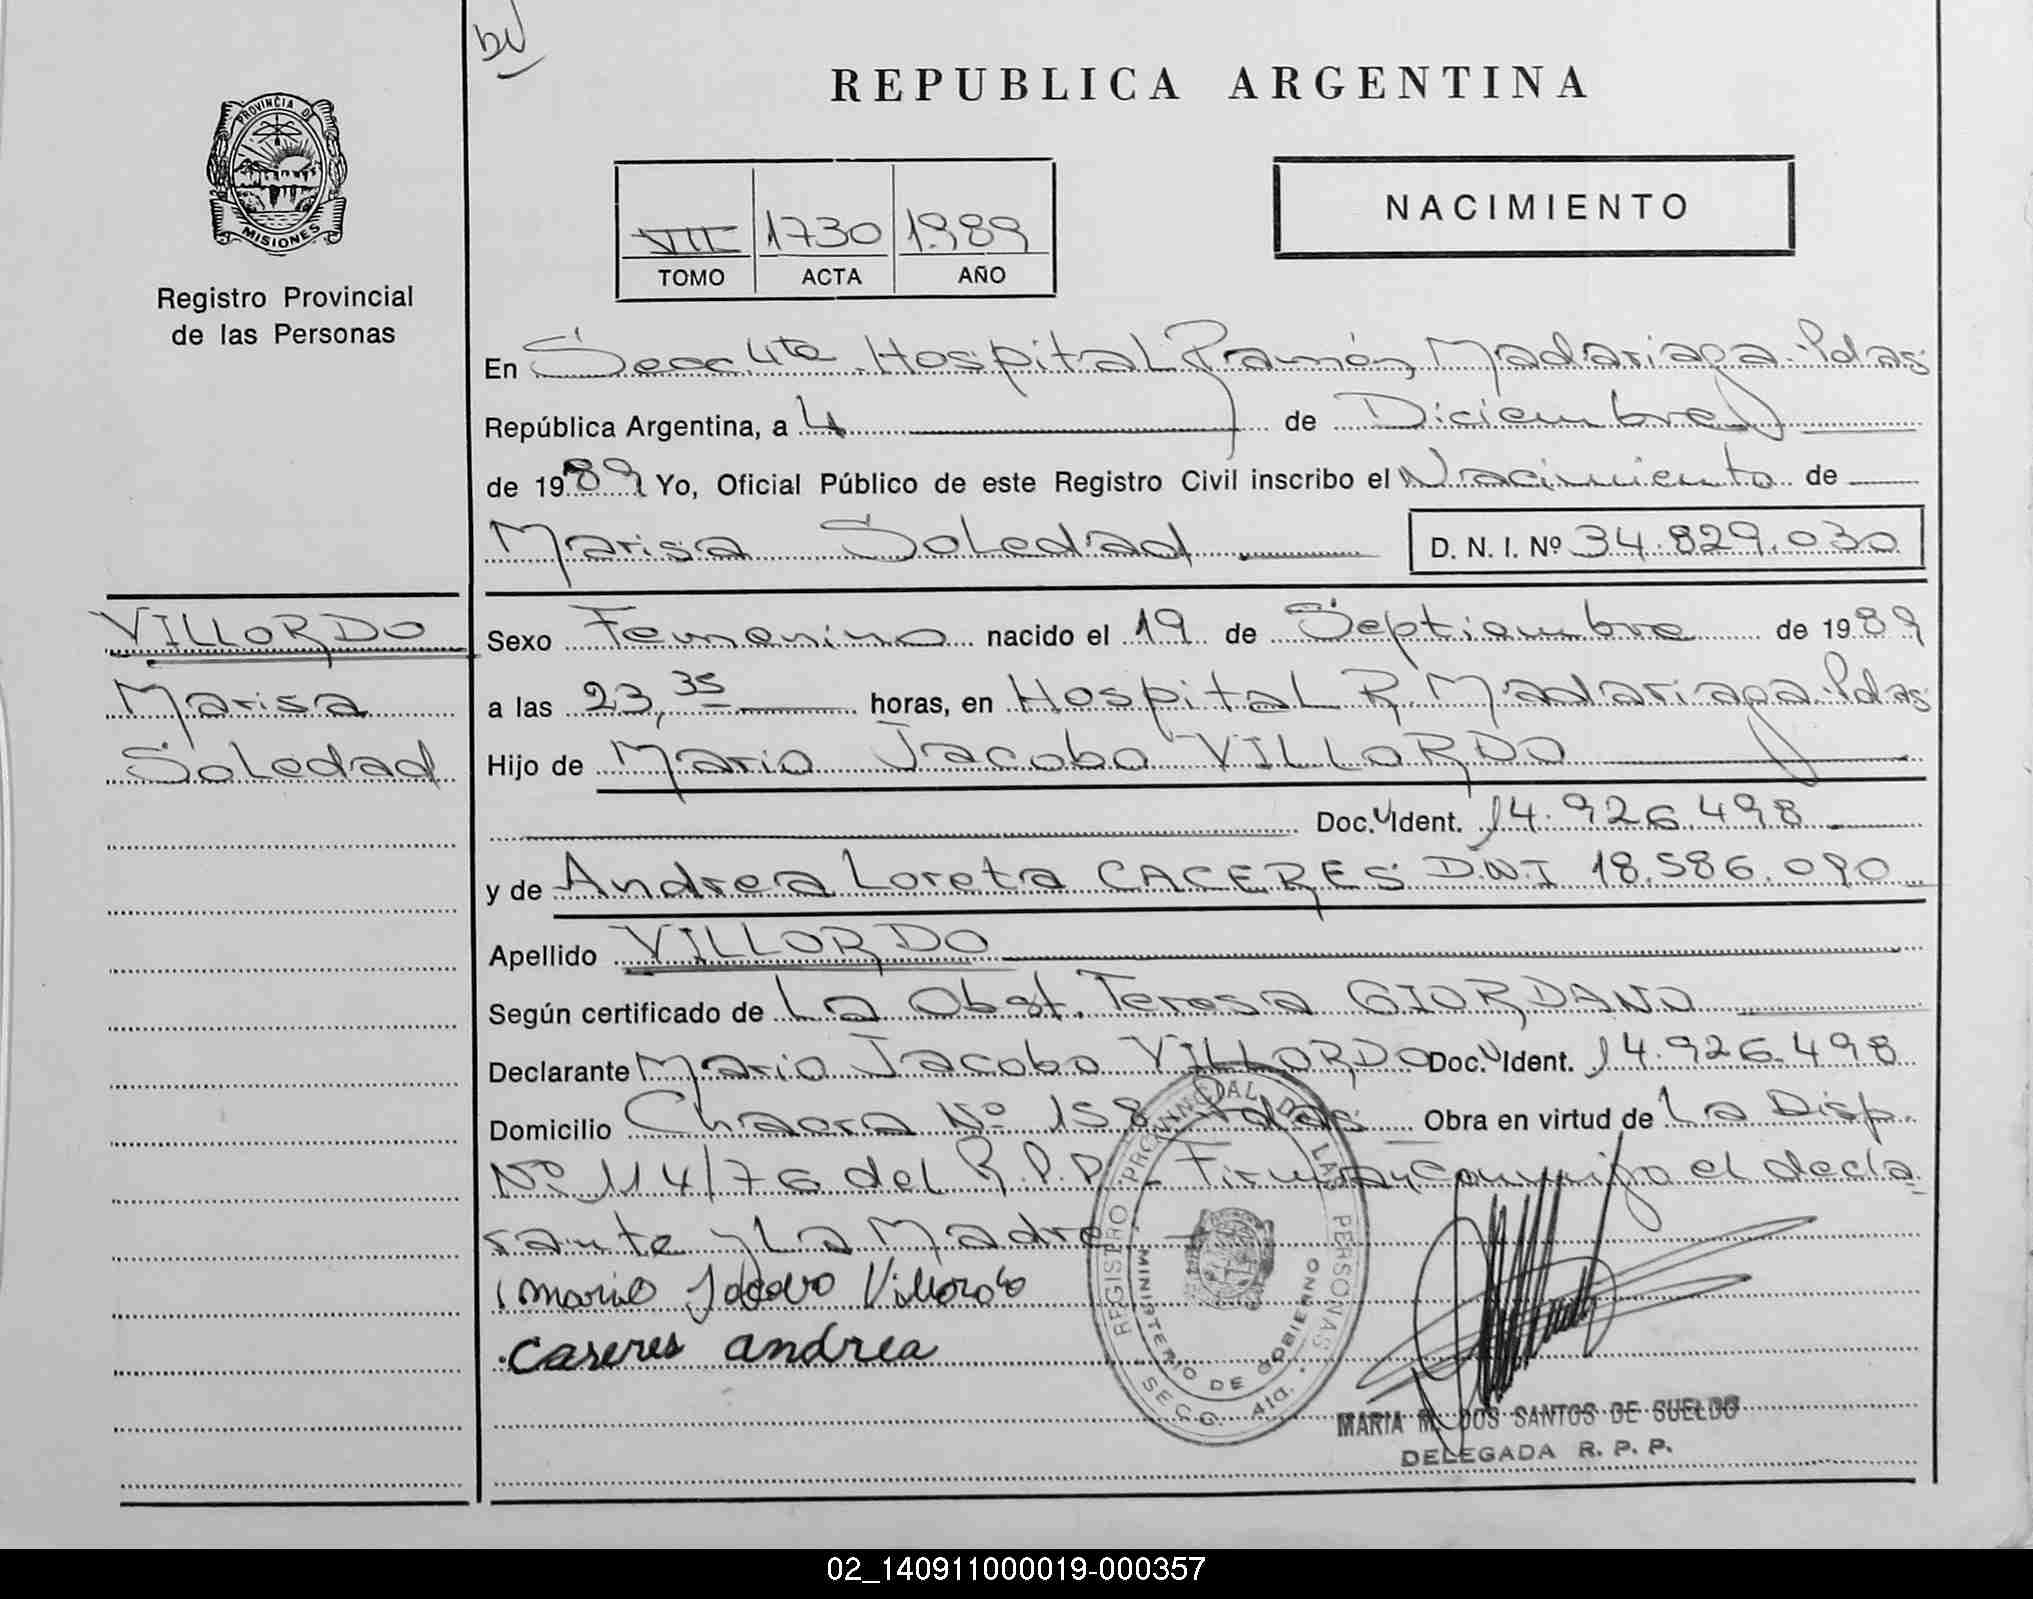 bv
REPUBLICA ARGENTINA
PROVINCIA DE
MISIONES
Registro Provincial
de las Personas
VIII 1730 1989
TOMO ACTA AÑO
NACIMIENTO
En Secc 4ta Hospital Ramón Madariaga. Pdas
República Argentina, a 4 de Diciembre
de 1989 Yo, Oficial Público de este Registro Civil inscribo el Nacimiento de
Marisa Soledad D. N. I. Nº 34.829.030
VILLORDO
Marisa
Soledad
Sexo Femenino nacido el 19 de Septiembre de 1989
a las 23,35 horas, en Hospital R. Madariaga. Pdas
Hijo de Mario Jacobo VILLORDO
Doc. Ident. 14.926.498
y de Andrea Loreta CACERES D.N.I 18.586.090
Apellido VILLORDO
Según certificado de La Obst. Teresa GIORDANO
Declarante Mario Jacobo VILLORDO Doc. Ident. 14.926.498
Domicilio Chacra Nº 158 Pdas Obra en virtud de La Disp.
Nº 114/76 del R.P.P. Firman conmigo el decla
rante y La Madre
Mario Jacobo Villordo
Caseres andrea
REGISTRO PROVINCIAL DE LAS PERSONAS
MINISTERIO DE GOBIERNO
SECC. 4ta.
MARIA M. DOS SANTOS DE SUELDO
DELEGADA R. P. P.
02_140911000019-000357